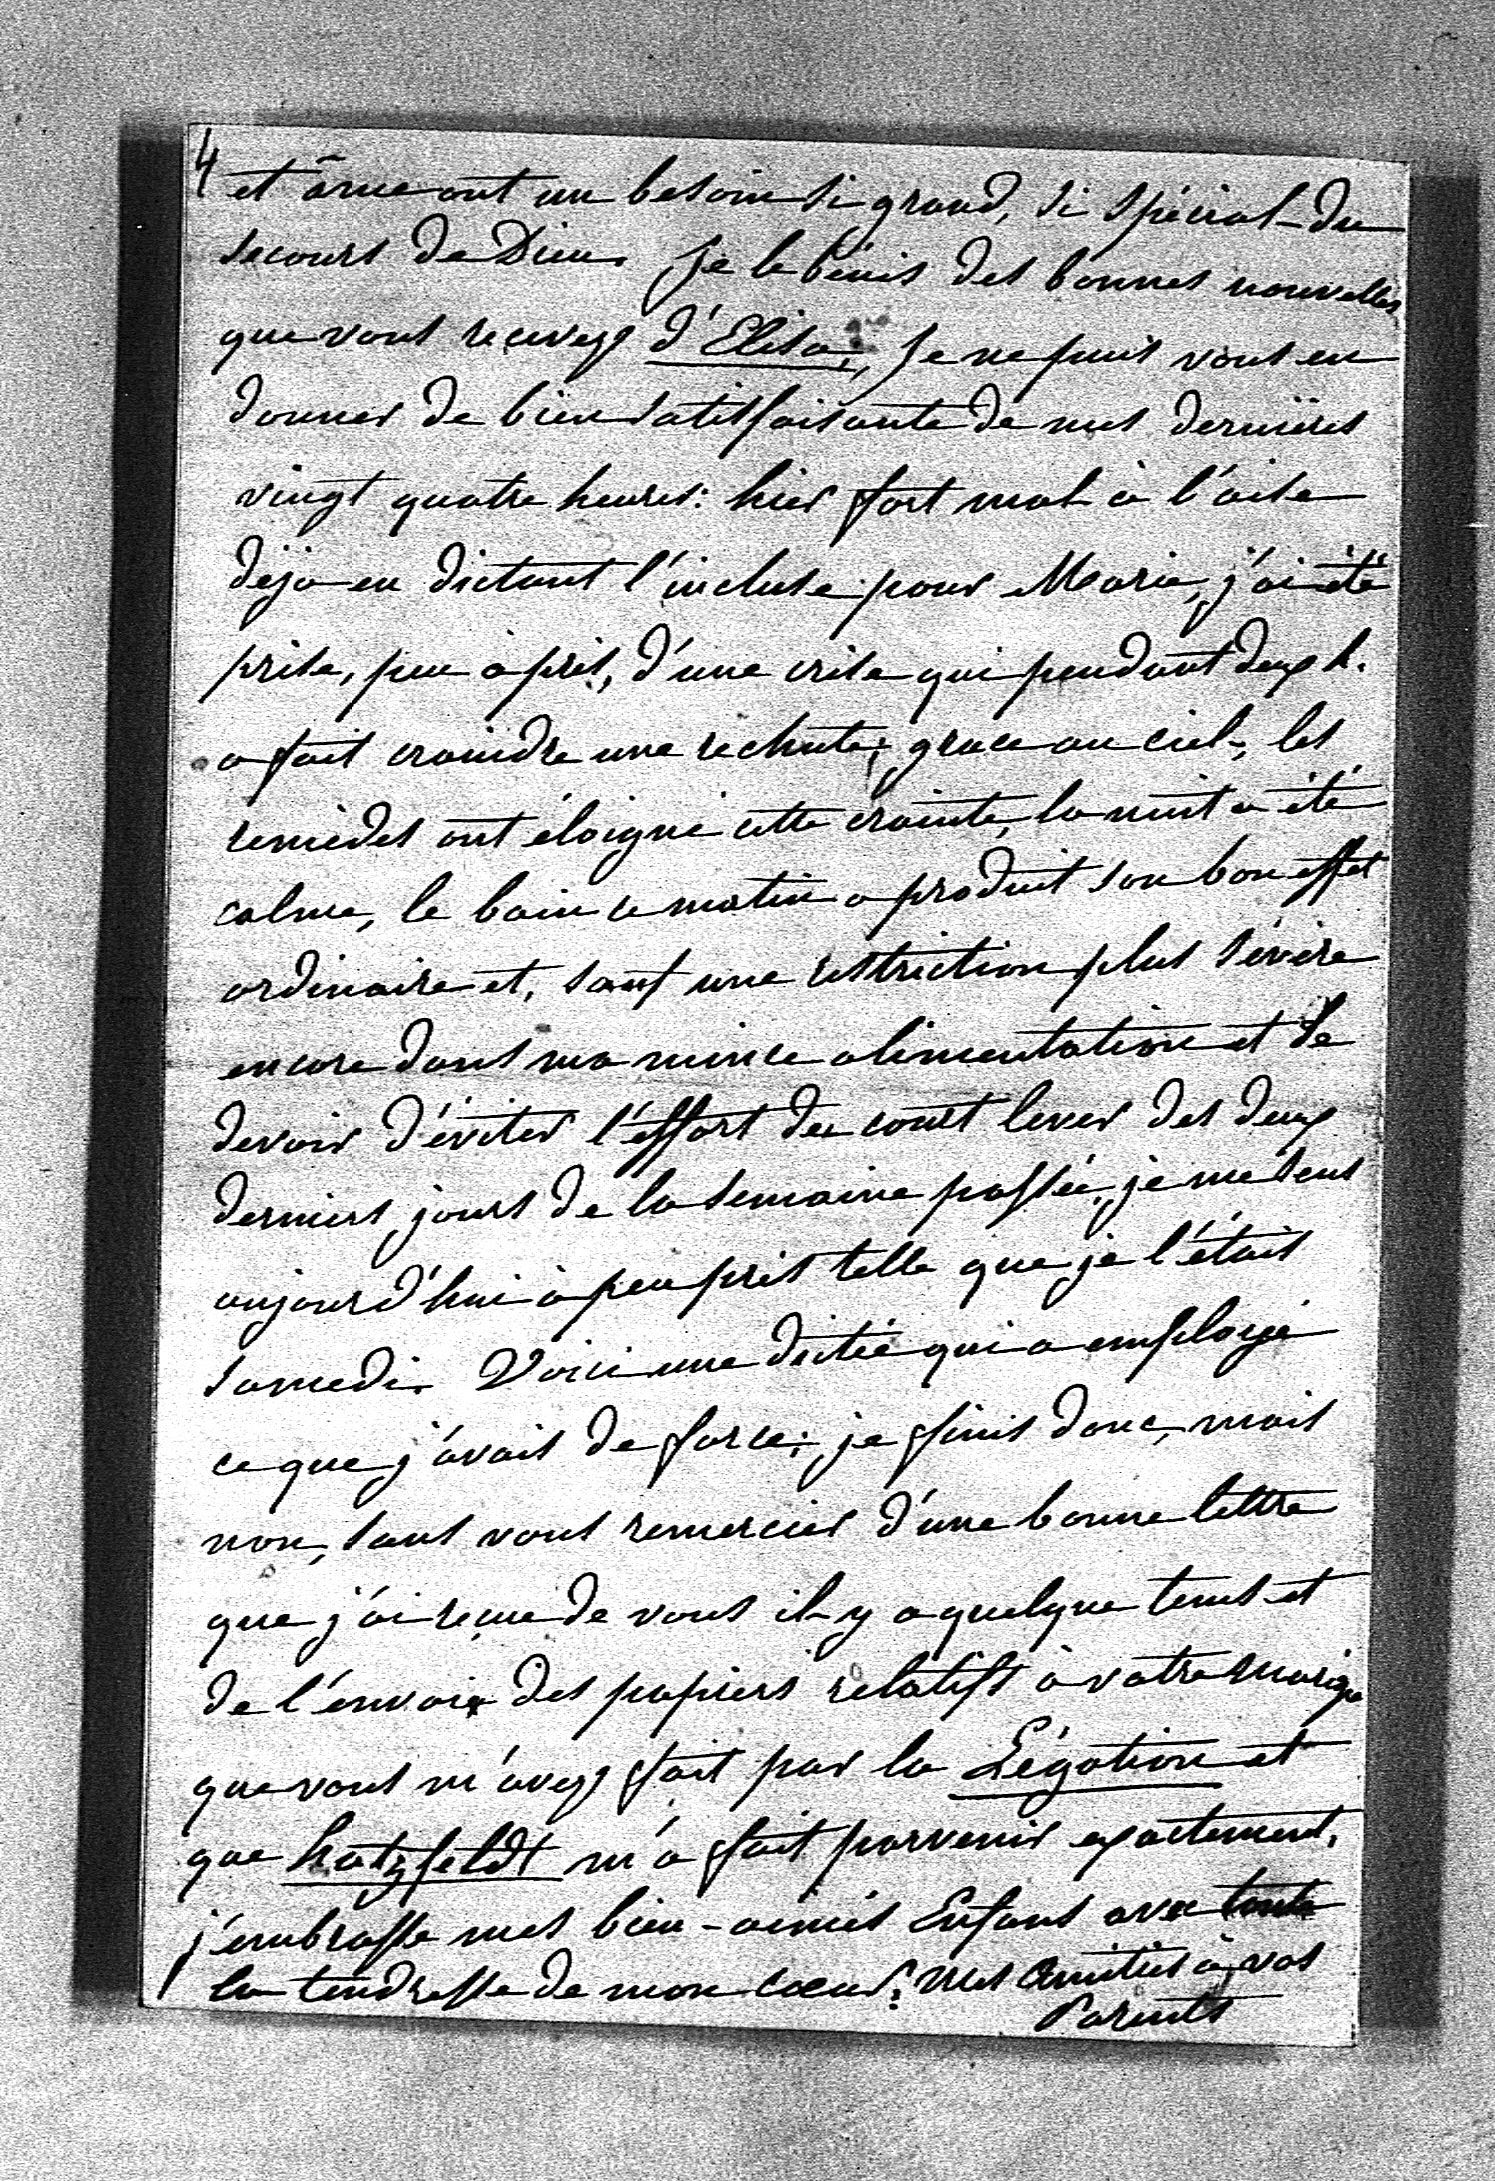 4
et âme ont un besoin si grand, si spécial du
secours de Dieu. Je le bénis des bonnes nouvelles
que vous recevez d'Elisa; Je ne puis vous en
donner de bien satisfaisante de mes dernières
vingt quatre heures: hier fort mal à l'aise
déja en dictant l'incluse pour Marie, j'ai été
prise, peu après, d'une crise qui pendant deux h.
a fait craindre une rechute; grace au ciel, les
remèdes ont éloigné cette crainte, la nuit a été
calme, le bain ce matin a produit son bon effet
ordinaire et, sauf une restriction plus sévère
encore dans ma mince alimentation et le
devoir d'éviter l'éffort du court lever des deux
derniers jours de la semaine passée, je me sens
aujourd'hui à peu près telle que je l'étais
samedi. Voici une dictée qui a employé
ce que j'avais de force; je finis donc, mais
non, sans vous remercier d'une bonne lettre
que j'ai reçue de vous il y a quelque tems et
de l'envoi des papiers relatifs à votre mariage
que vous m'avez fait par la Légation et
que hatzfeldt m'a fait parvenir exactement.
j'embrasse mes bien-aimés Enfans avec toute
la tendresse de mon cœur. Mes amitiés à vos
Parents